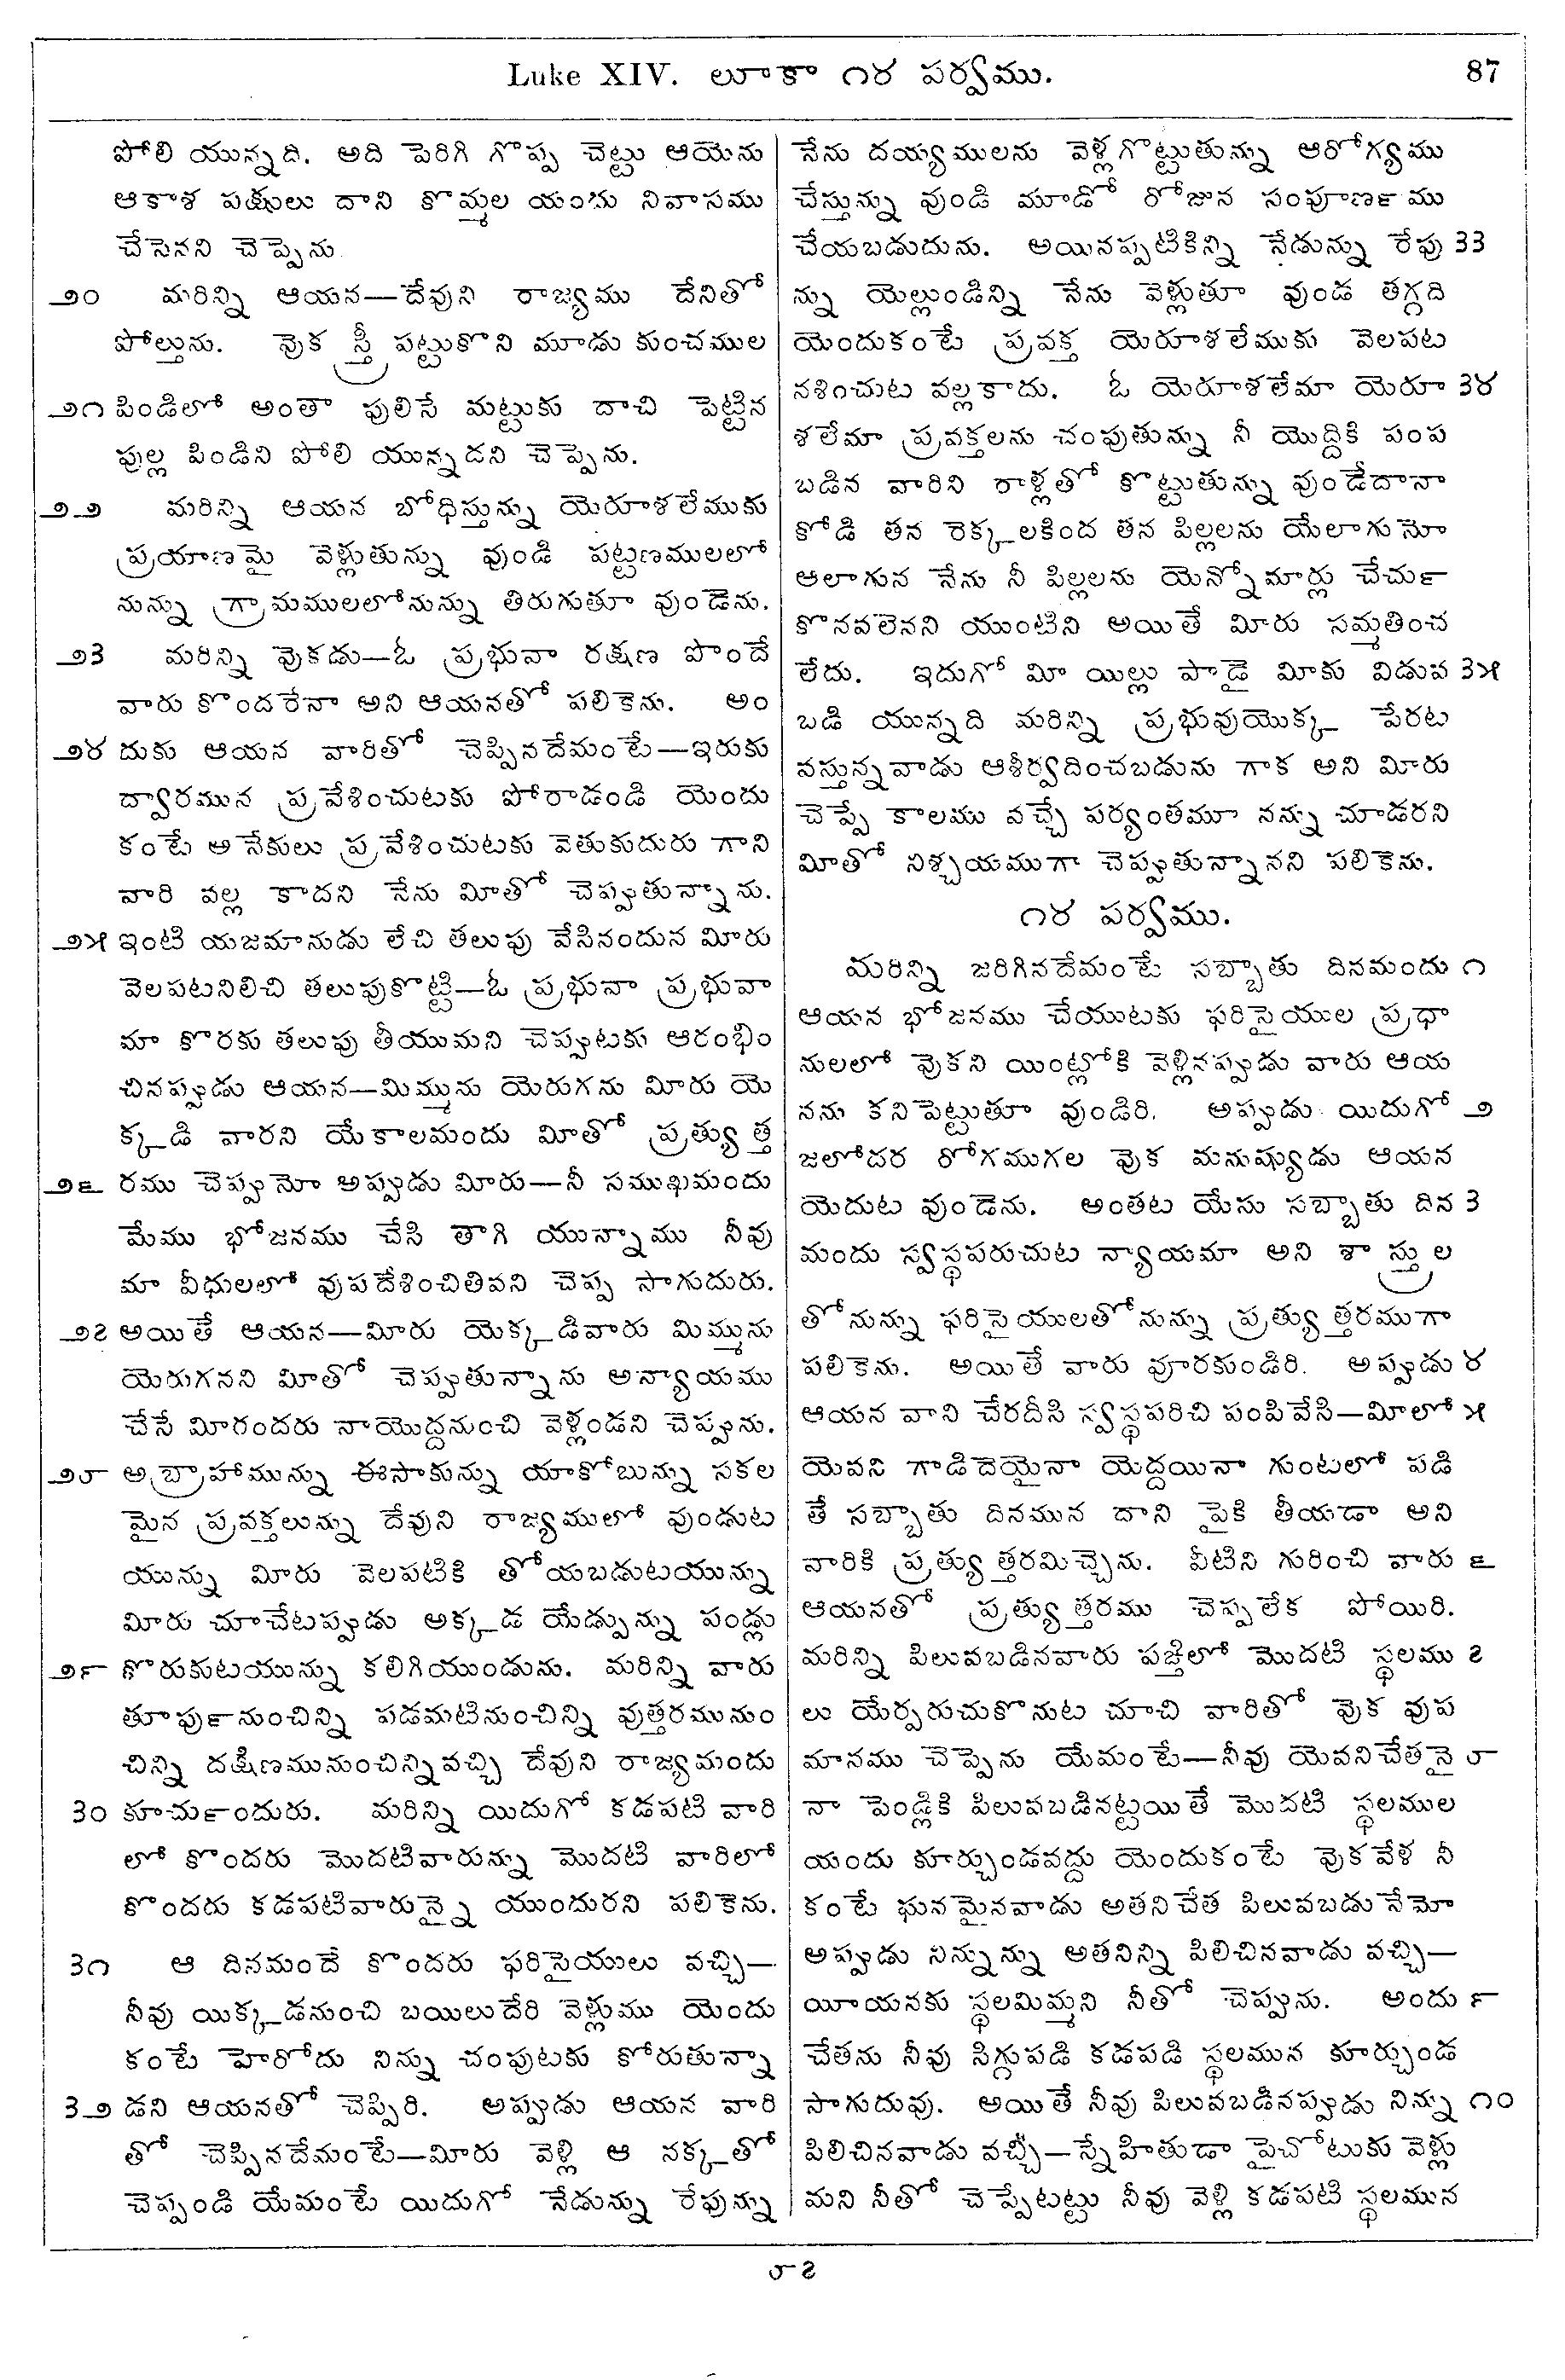 Luke XIV. లూకా ౧౪ పర్వము.
87
పోలి యున్నది. అది పెరిగి గొప్ప చెట్టు ఆయెను
ఆకాశ పక్షులు దాని కొమ్మల యందు నివాసము
చేసెనని చెప్పెను
౨౦ మరిన్ని ఆయన—దేవుని రాజ్యము దేనితో
పోల్తును. వుక స్త్రీ పట్టుకొని మూడు కుంచముల
౨౧ పిండిలో అంతా పులిసే మట్టుకు దాచి పెట్టిన
పుల్ల పిండిని పోలి యున్నదని చెప్పెను.
౨౨ మరిన్ని ఆయన బోధిస్తున్ను యెరూశలేముకు
ప్రయాణమై వెళ్లుతున్ను వుండి పట్టణములలో
నున్ను గ్రామములలోనున్ను తిరుగుతూ వుండెను.
౨౩ మరిన్ని వుకడు—ఓ ప్రభువా రక్షణ పొందే
వారు కొందరేనా అని ఆయనతో పలికెను. అం
౨౪ దుకు ఆయన వారితో చెప్పినదేమంటే—ఇరుకు
ద్వారమున ప్రవేశించుటకు పోరాడండి యెందు
కంటే అనేకులు ప్రవేశించుటకు వెతుకుదురు గాని
వారి వల్ల కాదని నేను మీతో చెప్పుతున్నాను.
౨౫ ఇంటి యజమానుడు లేచి తలుపు వేసినందున మీరు
వెలపటనిలిచి తలుపుకొట్టి—ఓ ప్రభువా ప్రభువా
మా కొరకు తలుపు తీయుమని చెప్పుటకు ఆరంభిం
చినప్పుడు ఆయన—మిమ్మును యెరుగను మీరు యె
క్కడి వారని యేకాలమందు మీతో ప్రత్యుత్త
౨౬ రము చెప్పునో అప్పుడు మీరు—నీ సముఖమందు
మేము భోజనము చేసి తాగి యున్నాము నీవు
మా వీధులలో వుపదేశించితివని చెప్ప సాగుదురు.
౨౭ అయితే ఆయన—మీరు యెక్కడివారు మిమ్మును
యెరుగనని మీతో చెప్పుతున్నాను అన్యాయము
చేసే మీరందరు నాయొద్దనుంచి వెళ్లండని చెప్పును.
౨౮ అబ్రాహామున్ను ఈసాకున్ను యాకోబున్ను సకల
మైన ప్రవక్తలున్ను దేవుని రాజ్యములో వుండుట
యున్ను మీరు వెలపటికి తోయబడుటయున్ను
మీరు చూచేటప్పుడు అక్కడ యేడ్పున్ను పండ్లు
౨౯ కొరుకుటయున్ను కలిగియుండును. మరిన్ని వారు
తూపు౯నుంచిన్ని పడమటినుంచిన్ని వుత్తరమునుం
చిన్ని దక్షిణమునుంచిన్నివచ్చి దేవుని రాజ్యమందు
౩౦ కూచు౯ందురు. మరిన్ని యిదుగో కడపటి వారి
లో కొందరు మొదటివారున్ను మొదటి వారిలో
కొందరు కడపటివారున్నై యుందురని పలికెను.
౩౧ ఆ దినమందే కొందరు ఫరిసైయులు వచ్చి—
నీవు యిక్కడనుంచి బయిలుదేరి వెళ్లుము యెందు
కంటే హెరోదు నిన్ను చంపుటకు కోరుతున్నా
౩౨ డని ఆయనతో చెప్పిరి. అప్పుడు ఆయన వారి
తో చెప్పినదేమంటే—మీరు వెళ్లి ఆ నక్కతో
చెప్పండి యేమంటే యిదుగో నేడున్ను రేపున్ను
నేను దయ్యములను వెళ్లగొట్టుతున్ను ఆరోగ్యము
చేస్తున్ను వుండి మూడో రోజున సంపూణ౯ము
చేయబడుదును. అయినప్పటికిన్ని నేడున్ను రేపు ౩౩
న్ను యెల్లుండిన్ని నేను వెళ్లుతూ వుండ తగ్గది
యెందుకంటే ప్రవక్త యెరూశలేముకు వెలపట
నశించుట వల్లకాదు. ఓ యెరూశలేమా యెరూ ౩౪
శలేమా ప్రవక్తలను చంపుతున్ను నీ యొద్దికి పంప
బడిన వారిని రాళ్లతో కొట్టుతున్ను వుండేదానా
కోడి తన రెక్కలకింద తన పిల్లలను యేలాగునో
ఆలాగున నేను నీ పిల్లలను యెన్నోమార్లు చేచు౯
కొనవలెనని యుంటిని అయితే మీరు సమ్మతించ
లేదు. ఇదుగో మీ యిల్లు పాడై మీకు విడువ ౩౫
బడి యున్నది మరిన్ని ప్రభువుయొక్క పేరట
వస్తున్నవాడు ఆశీర్వదించబడును గాక అని మీరు
చెప్పే కాలము వచ్చే పర్యంతమూ నన్ను చూడరని
మీతో నిశ్చయముగా చెప్పుతున్నానని పలికెను.
౧౪ పర్వము.
మరిన్ని జరిగినదేమంటే సబ్బాతు దినమందు ౧
ఆయన భోజనము చేయుటకు ఫరిసైయుల ప్రధా
నులలో వుకని యింట్లోకి వెళ్లినప్పుడు వారు ఆయ
నను కనిపెట్టుతూ వుండిరి. అప్పుడు యిదుగో ౨
జలోదర రోగముగల వుక మనుష్యుడు ఆయన
యెదుట వుండెను. అంతట యేసు సబ్బాతు దిన ౩
మందు స్వస్థపరుచుట న్యాయమా అని శాస్త్రుల
తోనున్ను ఫరిసైయులతోనున్ను ప్రత్యుత్తరముగా
పలికెను. అయితే వారు వూరకుండిరి. అప్పుడు ౪
ఆయన వాని చేరదీసి స్వస్థపరిచి పంపివేసి—మీలో ౫
యెవని గాడిదెయైనా యెద్దయినా గుంటలో పడి
తే సబ్బాతు దినమున దాని పైకి తీయడా అని
వారికి ప్రత్యుత్తరమిచ్చెను. వీటిని గురించి వారు ౬
ఆయనతో ప్రత్యుత్తరము చెప్పలేక పోయిరి.
మరిన్ని పిలువబడినవారు పఙ్తిలో మొదటి స్థలము ౭
లు యేర్పరుచుకొనుట చూచి వారితో వుక వుప
మానము చెప్పెను యేమంటే—నీవు యెవనిచేతనై ౮
నా పెండ్లికి పిలువబడినట్టయితే మొదటి స్థలముల
యందు కూర్చుండవద్దు యెందుకంటే వుకవేళ నీ
కంటే ఘనమైనవాడు అతనిచేత పిలువబడునేమో
అప్పుడు నిన్నున్ను అతనిన్ని పిలిచినవాడు వచ్చి—
యీయనకు స్థలమిమ్మని నీతో చెప్పును. అందు ౯
చేతను నీవు సిగ్గుపడి కడపడి స్థలమున కూర్చుండ
సాగుదువు. అయితే నీవు పిలువబడినప్పుడు నిన్ను ౧౦
పిలిచినవాడు వచ్చి—స్నేహితుడా పైచోటుకు వెళ్లు
మని నీతో చెప్పేటట్టు నీవు వెళ్లి కడపటి స్థలమున
౮౭